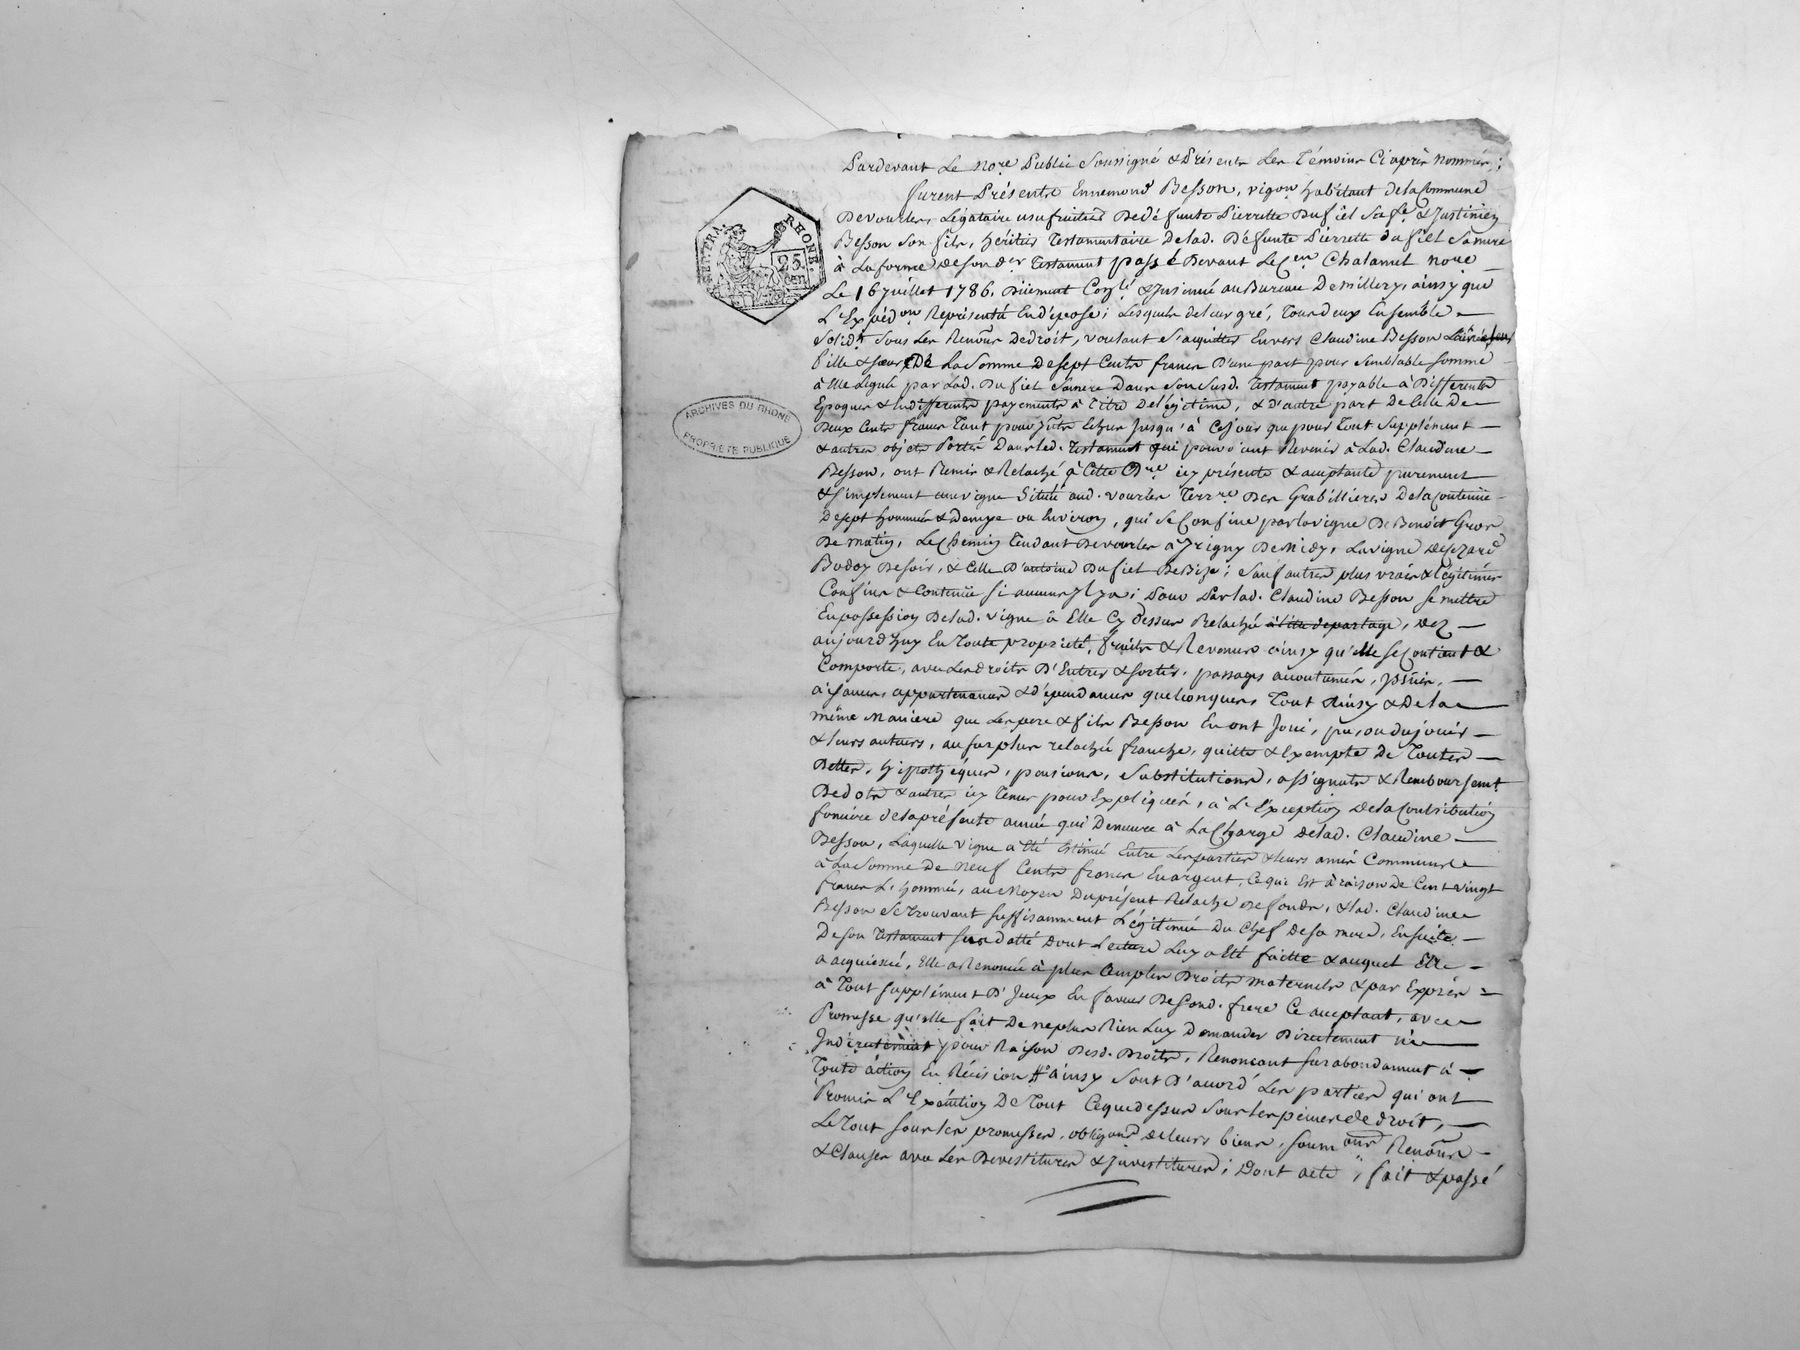 Pardevant Le No.re Public Soussigné & Présents Les Témoins Ci après nommés;
furent Présents Ennemond Besson, vigon habitant de la Commune
De vourles, Légataire usufruitier De défunte Pierrette Dufiêl Sa fe & Justinien
Besson Son fils, héritier Testamentaire De lad. Défunte Pierrette du fiel Sa mere
à La forme De son der Testament passé Devant Le Cen Chalamel no.re
Le 16 juillet 1786. Dûement Conlé & Insinué au Bureau De millery, ainsy que
L'Expédon Représenté En dépose; Lesquels de leur gré, Tous deux Ensemble
Solidt Sous Les Renons De droit, voulant S'aquitter Envers Claudine Besson Leur
fille & sœur De La Somme De sept Cents francs D'une part pour Semblable Somme
à Elle Légué par Lad. Du fiel Sa mere Dans Son Susd. Testament payable à Differentes
Epoques & En differents payements à Titre De légitime, & D'autre part De Celle De
Deux Cents francs Tant pour Jusqu'à Ce jour que pour Tout Supplément
& autres objets Portés Dans led. Testament qui pouvoient Revenir à Lad. Claudine
Besson, ont Remis & Relaché à Cette Dre icy présente & acceptante purement
& Simplement une vigne Située aud. vourles Terre Des Grabillieres De la Contenüe
De sept hommées & Demye ou Environ, qui Se Confine par la vigne De Benoit Gros
De matin, Le Chemin Tendant De vourles à Irigny De Midy, La vigne De
Bodoy De soir, & Celle D'antoine Du fiel De Bize; Sauf autres plus vrais & légitimes
Confins & Contenüe Si aucuns Il y a; Pour Par lad. Claudine Besson se mettre
En possession De lad. vigne à Elle Cy dessus Relaché à titre de partage, Dez
aujourdhuy En Toute propriété, fruits & Revenus ainsy qu'elle se Contient &
Comporte, avec Les droits D'Entrer & Sortir, passages accoutumés, Issües,
aisances, appartenances & dépendances quelconques Tout Ainsy & De la
même Maniere que Les pere & fils Besson En ont Joui, pu, ou du jouir
& leurs auteurs, au surplus relaché franche, quitte & Exempte De Toutes
Dettes, hipothéques, pensions, Substitutions, assignats & Remboursemt
De dots & autres icy Tenus pour Expliqués, à L'Exception De la Contribution
fonciere De la présente année qui Demeure à La Charge De lad. Claudine
Besson, Laquelle vigne a Eté Estimée Entre Les parties & leurs amis Communs
à La Somme De Neuf Cents francs En argent, Ce qui Est à raison De Cent vingt
francs L'hommée, au Moyen Du présent Relaché De fonds, & lad. Claudine
Besson Se Trouvant suffisamment Légitimée Du Chef De sa mere, Ensuite
De son Testament susdatté Dont Lecture Luy a Eté faitte & auquel Elle
a acquiescé, Elle a Renoncé à plus Amples Droits maternels & par Exprès
à Tout supplément D'Iceux En faveur De Sond. frere Ce acceptant, avec
Promesse qu'elle fait De ne plus Rien Luy Demander Directement ni
Indirectement pour Raison Desd. Droits, Renoncant surabondamment à
Toute action En Récision # ainsy Sont D'accord Les parties qui ont
Promis L'Exécution De Tout Ce que dessus Sous Les peines de droit,
Le Tout sous les promesses, obligons De leurs biens, Soumons Renons
& Clauses avec Les Devestitures & Investitures; Dont acte; fait & passé
RHONE.
25. cen
ARCHIVES DU RHONE
PROPRIETE PUBLIQUE